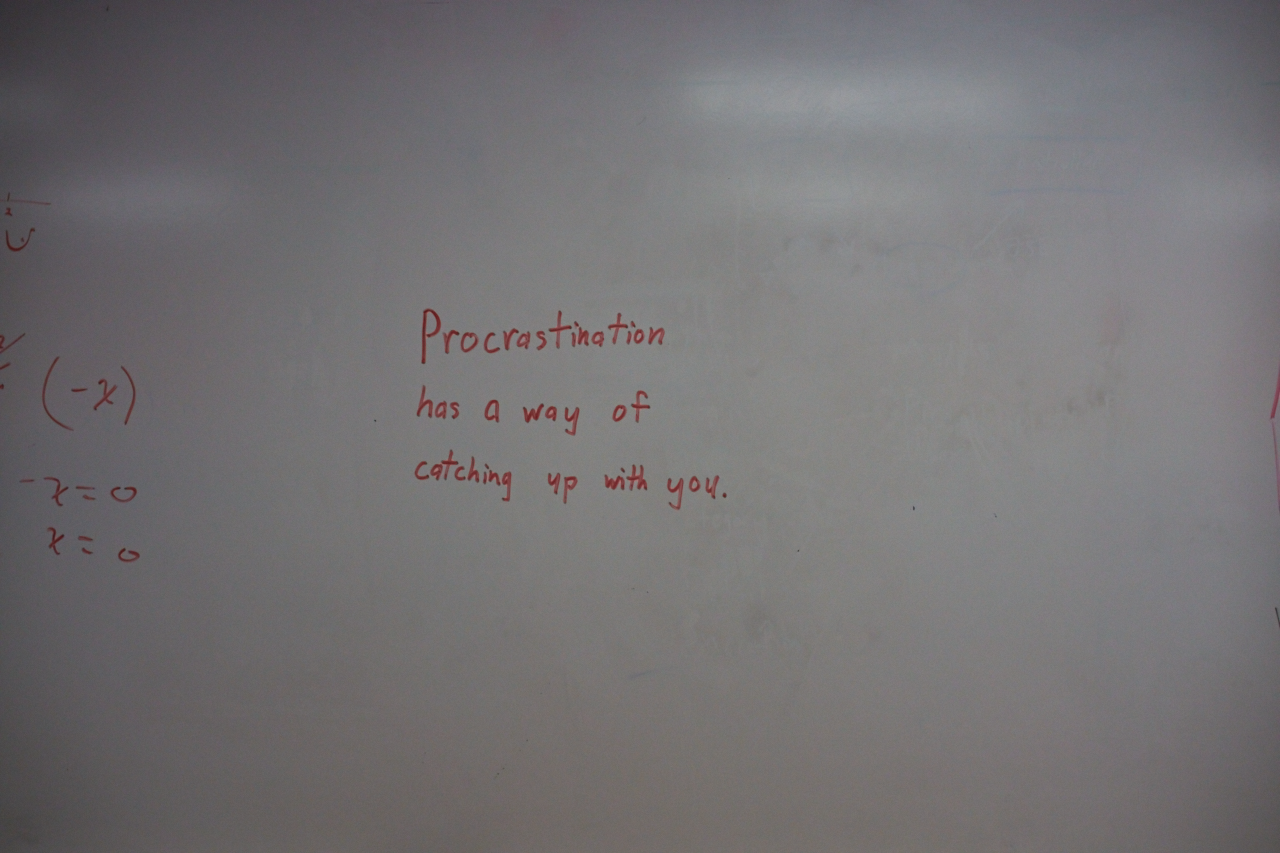 (-x)
-x = 0
x = 0
Procrastination
has a way of
catching up with you.